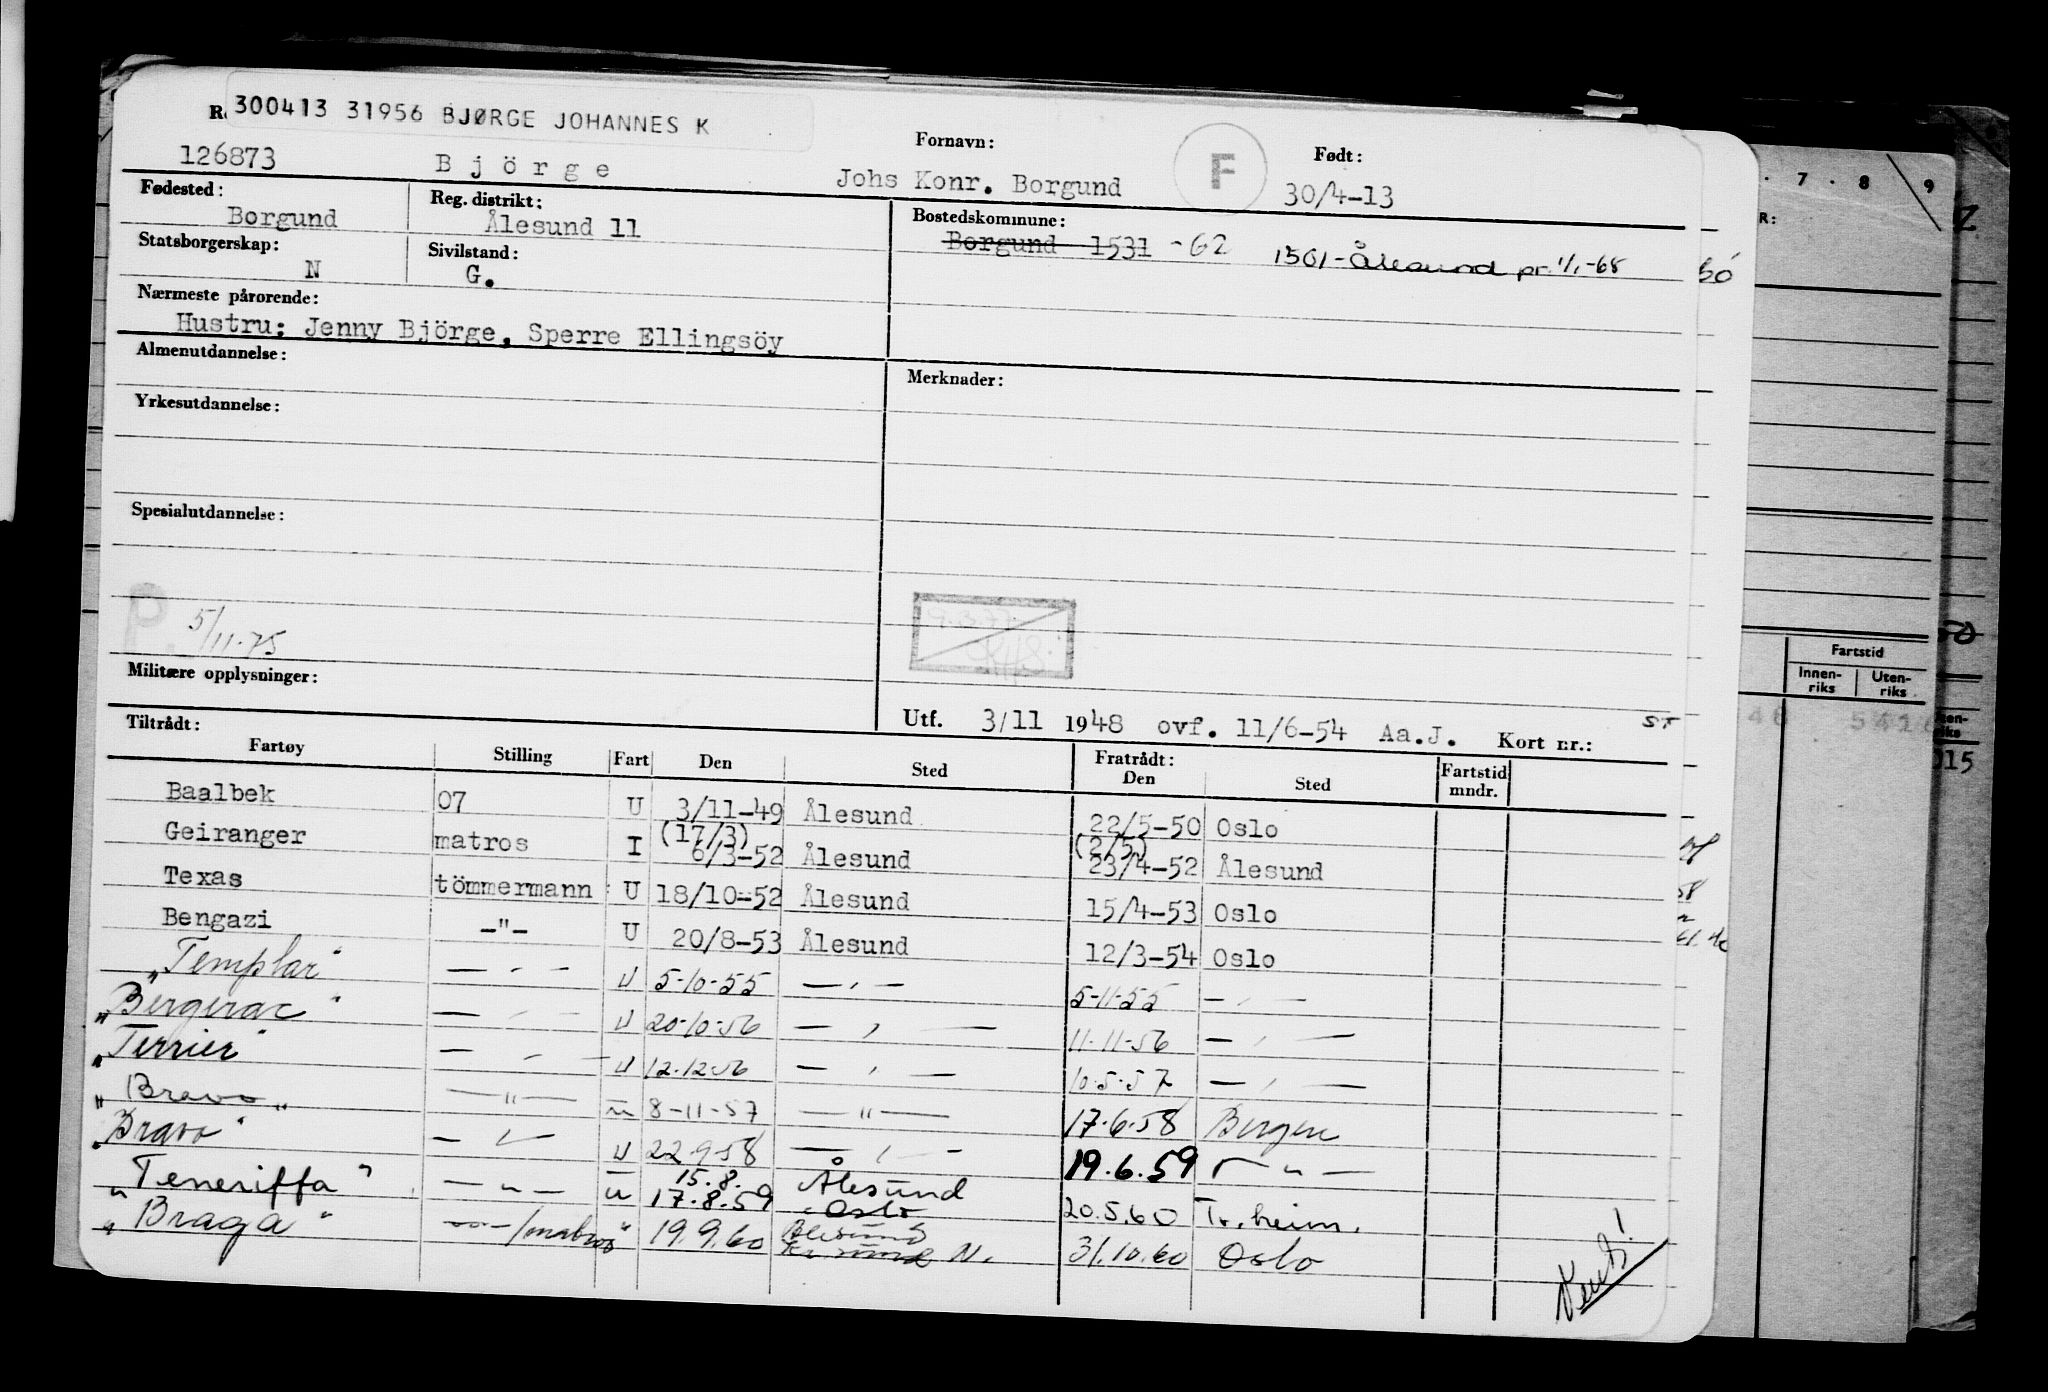 300413 31956 BJØRGE JOHANNES K
Fornavn: Født:
126873 Björge Johs Konr. Borgund F 30/4-13
Fødested: Reg. distrikt: Bostedskommune:
Borgund Ålesund 11 Borgund 1531 -62 1501-Ålesund pr. 1/1-68
Statsborgerskap: Sivilstand:
N G.
Nærmeste pårørende:
Hustru: Jenny Björge, Sperre Ellingsöy
Almenutdannelse:
Merknader:
Yrkesutdannelse:
Spesialutdannelse:
P. 5/11-75
Militære opplysninger:
Utf. 3/11 1948 ovf. 11/6-54 Aa.J. Kort nr.: ST
Tiltrådt: Fratrådt:
Fartøy Stilling Fart Den Sted Den Sted Fartstid mndr.
Baalbek 07 U 3/11-49 Ålesund 22/5-50 Oslo
(17/3) (2/5)
Geiranger matros I 6/3-52 Ålesund 23/4-52 Ålesund
Texas tömmermann U 18/10-52 Ålesund 15/4-53 Oslo
Bengazi -"- U 20/8-53 Ålesund 12/3-54 Oslo
"Templar" — " — U 5-10-55 — " — 5-11-55 — " —
"Bergerac" — " — U 20-10-56 — " — 11-11-56 — " —
"Terrier" — " — U 12.12.56 — " — 10.5.57 — " —
"Bravo" — " — u 8-11-57 — " — 17.6.58 Bergen
"Bravo" — " — U 22.9.58 — " — 19.6.59 — " —
15.8. Ålesund
"Teneriffa" — " — u 17.8.59 Oslo 20.5.60 Tr.heim.
"Braga" — " — /matros " 19.9.60 Ålesund N. 31.10.60 Oslo
7 . 8 . 9
R:
Fartstid
Innen-riks Uten-riks
015